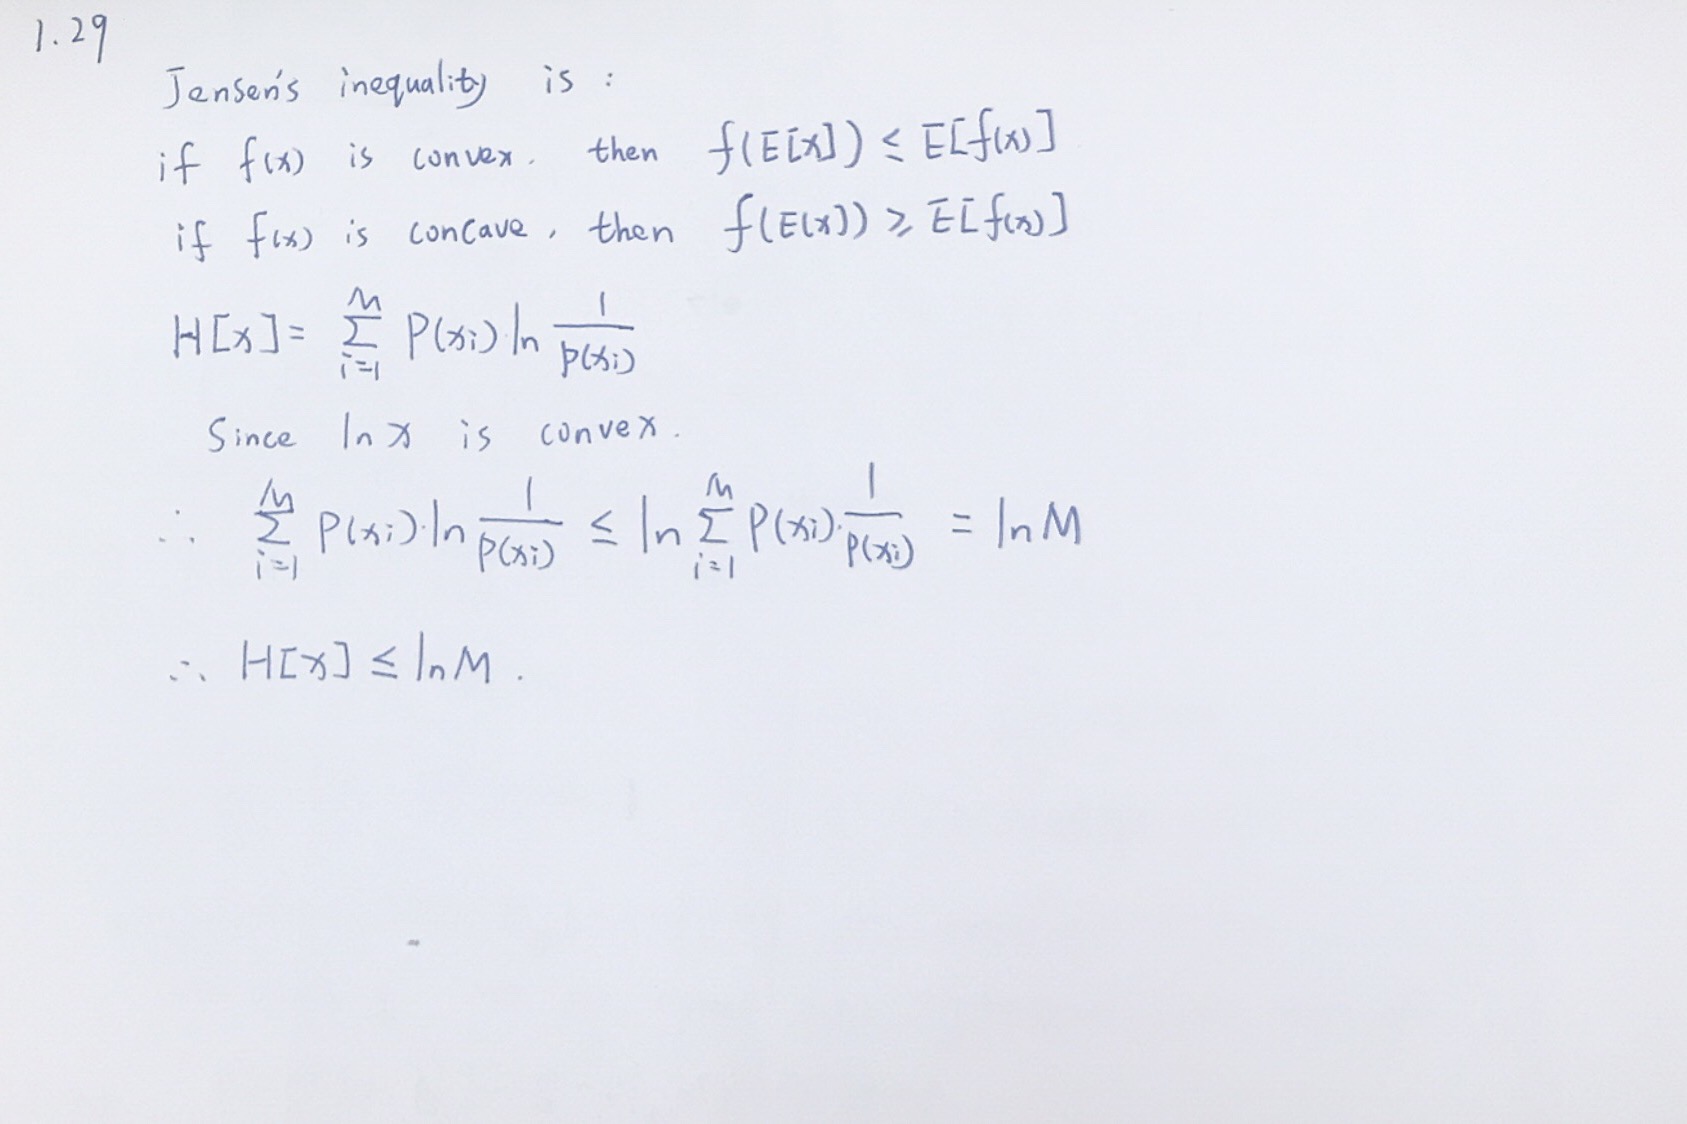 1.29
Jensen's inequality is :
if f(x) is convex. then f(E[x]) ≤ E[f(x)]
if f(x) is concave, then f(E(x)) ≥ E[f(x)]
H[x] = ∑_{i=1}^{M} P(xi)·ln 1/p(xi)
Since ln x is convex.
∴ ∑_{i=1}^{M} P(xi)·ln 1/p(xi) ≤ ln ∑_{i=1}^{M} P(xi)·1/p(xi) = ln M
∴ H[x] ≤ ln M.